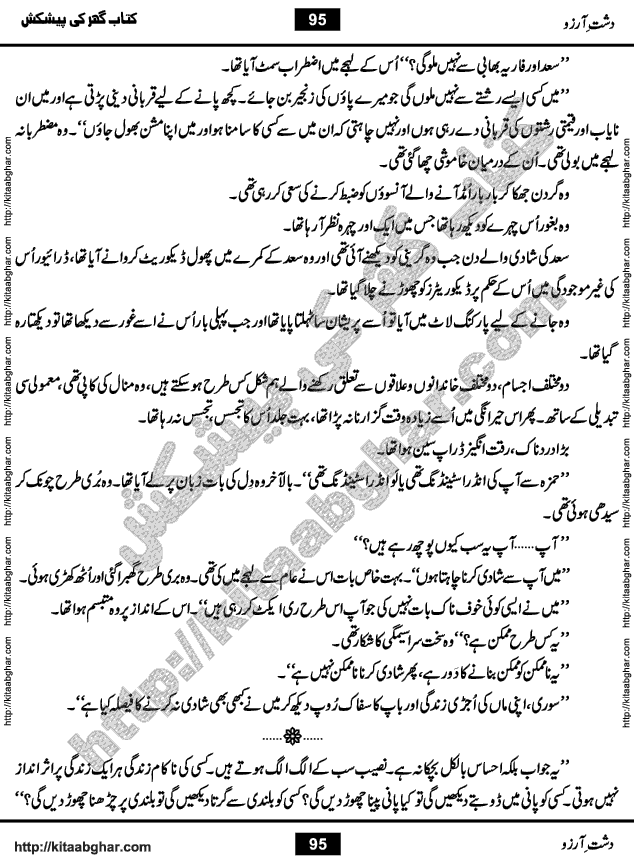 کتاب گھر کی پیشکش 95 دشتِ آرزو
’’سعد اور فاریہ بھابی سے نہیں ملو گی؟‘‘ اُس کے لہجے میں اضطراب سمٹ آیا تھا۔
’’میں کسی ایسے رشتے سے نہیں ملوں گی جو میرے پاؤں کی زنجیر بن جائے۔ کچھ پانے کے لیے قربانی دینی پڑتی ہے اور میں ان
نایاب اور قیمتی رشتوں کی قربانی دے رہی ہوں اور نہیں چاہتی کہ ان میں سے کسی کا سامنا ہو اور میں اپنا مشن بھول جاؤں‘‘۔ وہ مضطربانہ
لہجے میں بولی تھی۔ اُن کے درمیان خاموشی چھا گئی تھی۔
وہ گردن جھکا کر بار بار اُمڈ آنے والے آنسوؤں کو ضبط کرنے کی سعی کر رہی تھی۔
وہ بغور اُس چہرے کو دیکھ رہا تھا جس میں ایک اور چہرہ نظر آ رہا تھا۔
سعد کی شادی والے دن جب وہ گرینی کو دیکھنے آئی تھی اور وہ سعد کے کمرے میں پھول ڈیکوریٹ کروانے آیا تھا، ڈرائیور اُس
کی غیر موجودگی میں اُس کے حکم پر ڈیکوریٹرز کو چھوڑنے چلا گیا تھا۔
وہ جانے کے لیے پارکنگ لاٹ میں آیا تو اُسے پریشان سا ٹہلتا پایا تھا اور جب پہلی بار اُس نے اسے غور سے دیکھا تھا تو دیکھتا رہ
گیا تھا۔
دو مختلف اجسام، دو مختلف خاندانوں و علاقوں سے تعلق رکھنے والے ہم شکل کس طرح ہو سکتے ہیں، وہ منال کی کاپی تھی، معمولی سی
تبدیلی کے ساتھ۔ پھر اس حیرانگی میں اُسے زیادہ وقت گزارنا نہ پڑا تھا، بہت جلد اُس کا تجسس، تجسس نہ رہا تھا۔
بڑا دردناک، رقت انگیز ڈراپ سین ہوا تھا۔
’’حمزہ سے آپ کی انڈر اسٹینڈنگ تھی یا لو انڈر اسٹینڈنگ تھی‘‘۔ بالآخر وہ دل کی بات زبان پر لے آیا تھا۔ وہ بُری طرح چونک کر
سیدھی ہوئی تھی۔
’’آپ......آپ یہ سب کیوں پوچھ رہے ہیں؟‘‘
’’میں آپ سے شادی کرنا چاہتا ہوں‘‘۔ بہت خاص بات اس نے عام سے لہجے میں کی تھی۔ وہ بری طرح گھبرا گئی اور اُٹھ کھڑی ہوئی۔
’’میں نے ایسی کوئی خوف ناک بات نہیں کی جو آپ اس طرح ری ایکٹ کر رہی ہیں‘‘۔ اس کے انداز پر وہ متبسم ہوا تھا۔
’’یہ کس طرح ممکن ہے؟‘‘ وہ سخت سراسیمگی کا شکار تھی۔
’’یہ ناممکن کو ممکن بنانے کا دَور ہے، پھر شادی کرنا ناممکن نہیں ہے‘‘۔
’’سوری، اپنی ماں کی اُجڑی زندگی اور باپ کا سفاک رُوپ دیکھ کر میں نے کبھی بھی شادی نہ کرنے کا فیصلہ کیا ہے‘‘۔
’’یہ جواب بلکہ احساس بالکل بچکانہ ہے۔ نصیب سب کے الگ الگ ہوتے ہیں۔ کسی کی ناکام زندگی ہر ایک زندگی پر اثر انداز
نہیں ہوتی۔ کسی کو پانی میں ڈوبتے دیکھیں گی تو کیا پانی پینا چھوڑ دیں گی؟ کسی کو بلندی سے گرتا دیکھیں گی تو بلندی پر چڑھنا چھوڑ دیں گی؟‘‘
http://kitaabghar.com 95 دشتِ آرزو
http://kitaabghar.com http://kitaabghar.com http://kitaabghar.com http://kitaabghar.com http://kitaabghar.com http://kitaabghar.com
http://kitaabghar.com http://kitaabghar.com http://kitaabghar.com http://kitaabghar.com http://kitaabghar.com http://kitaabghar.com
کتاب گھر کی پیشکش
http://kitaabghar.com